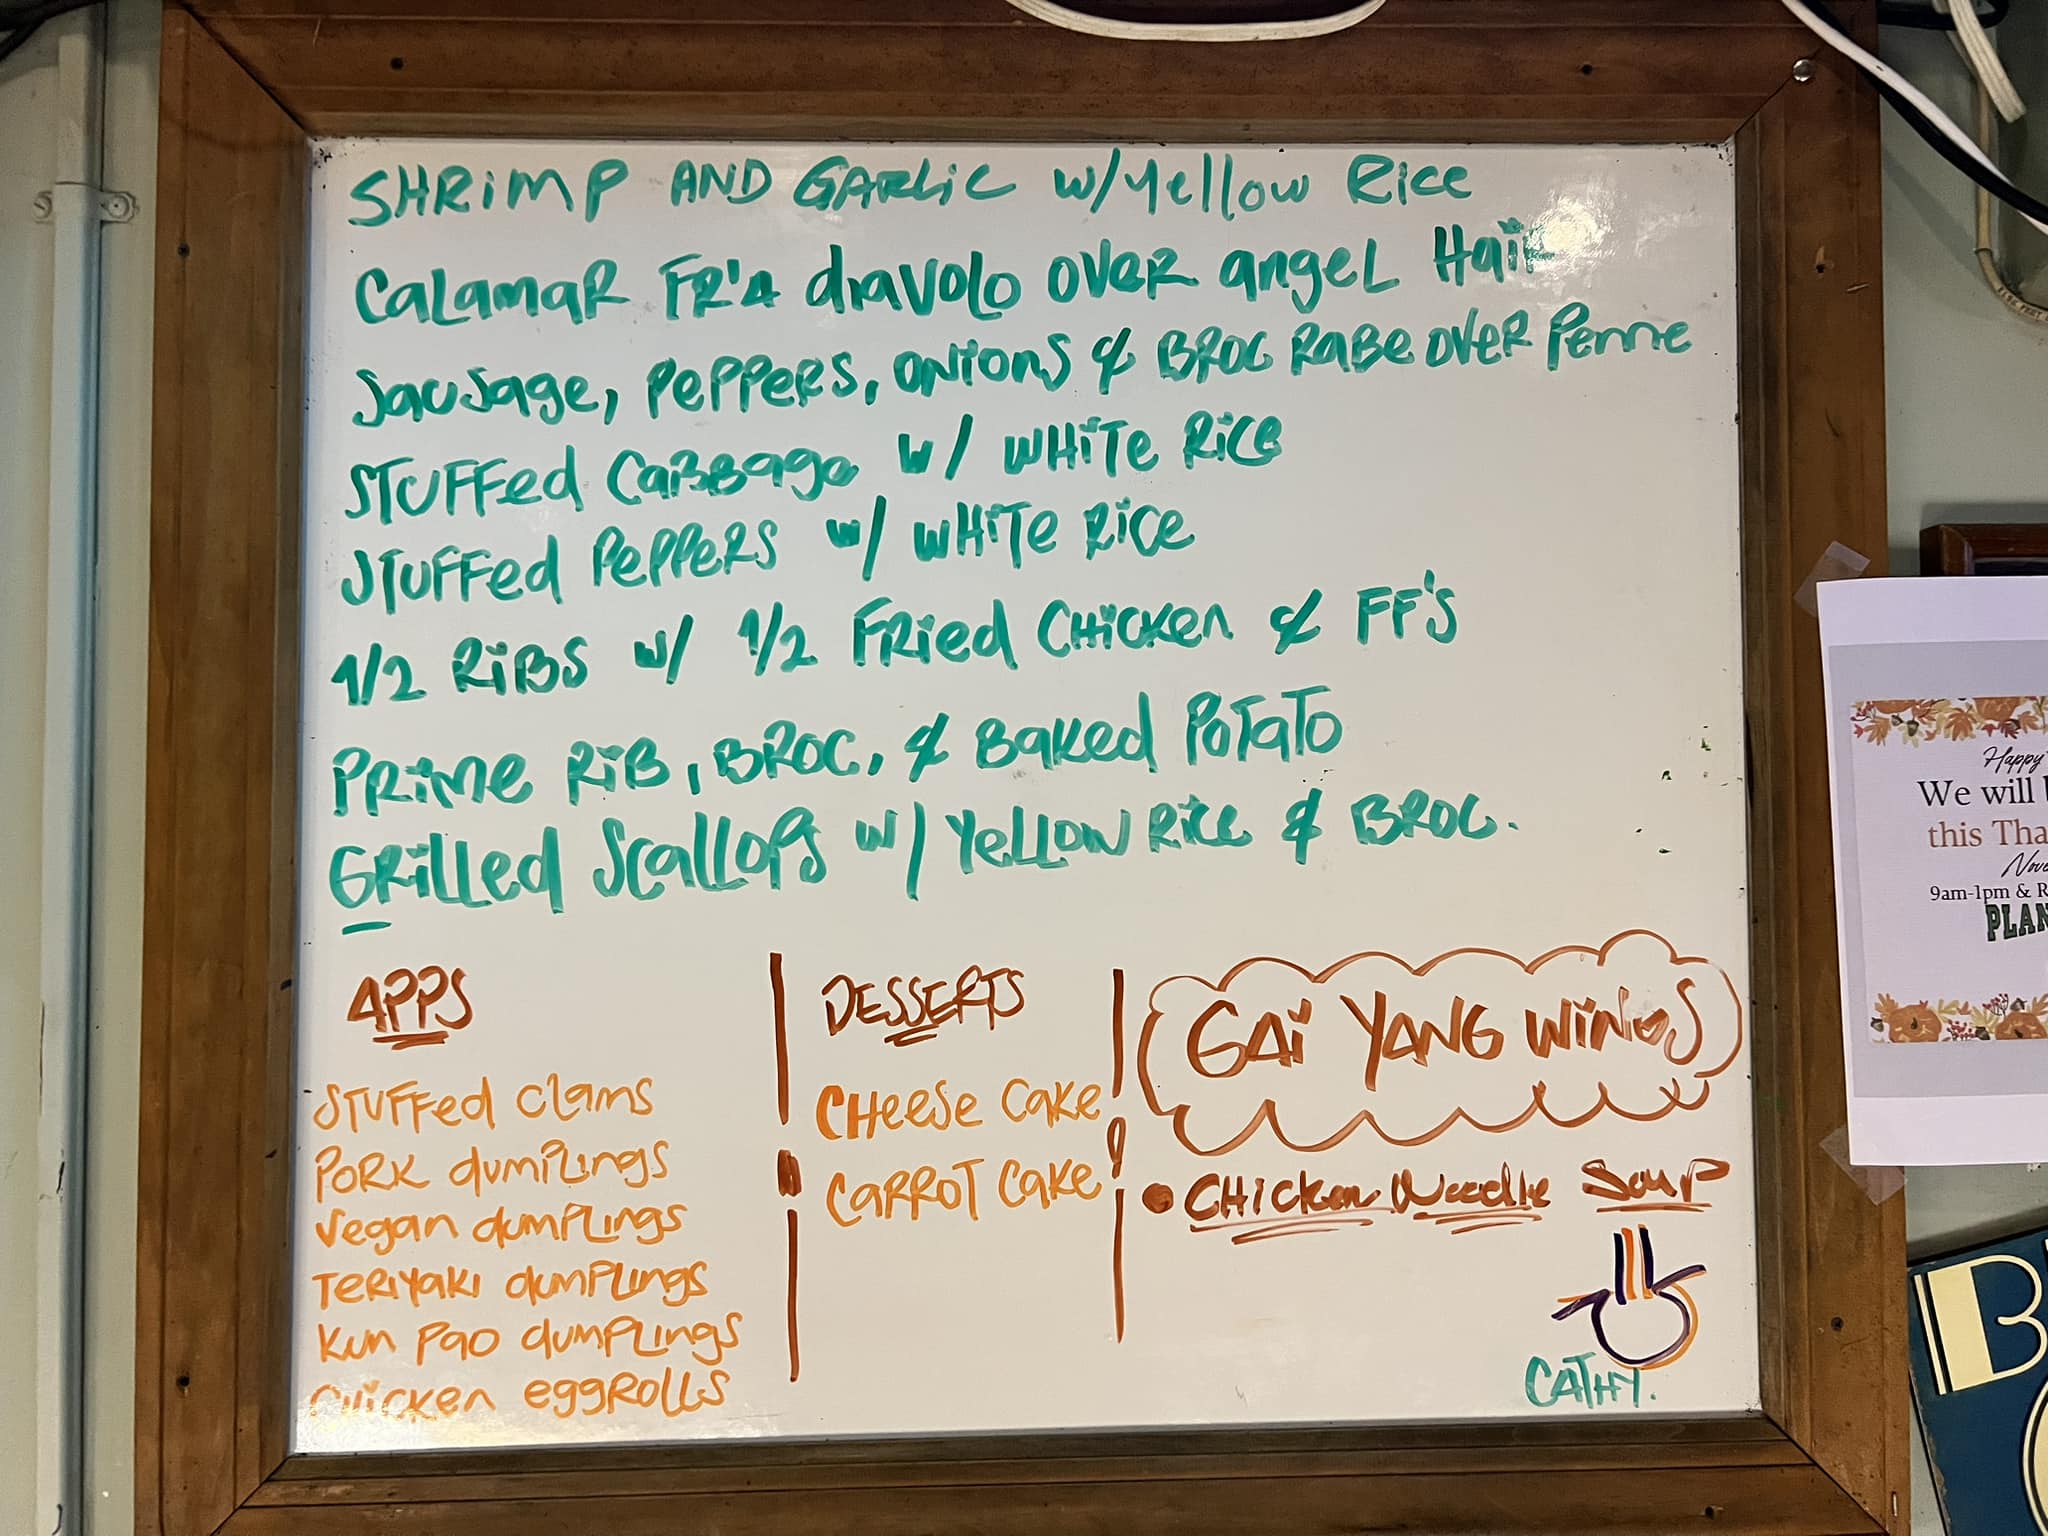 SHRimP AND GARLiC w/Yellow Rice
CaLamaR FR'A diavolo over angel Hair
Sausage, PePPeRS, oNions & BROC RaBe over Penne
STUFFed CaBBage w/ WHiTe RiCe
STUFFed PePPeRS w/ WHiTe RiCe
1/2 RiBS w/ 1/2 FRied CHicKen & FF's
PRime RiB, BROC, & BaKed PoTaTo
GRilled Scallops w/ Yellow Rice & BROC.
APPS
STuFFed clams
PoRK dumPLings
vegan dumPLings
TeRiYaki dumPLings
Kun Pao dumPLings
CHicKen eggRolls
DESSERTS
CHeese CaKe
CaRRoT CaKe
GAi YANG WiNGS
CHicKen Noodle Soup
CATHY.
Happy
We will
this Tha
Nove
9am-1pm & R
PLAN
B